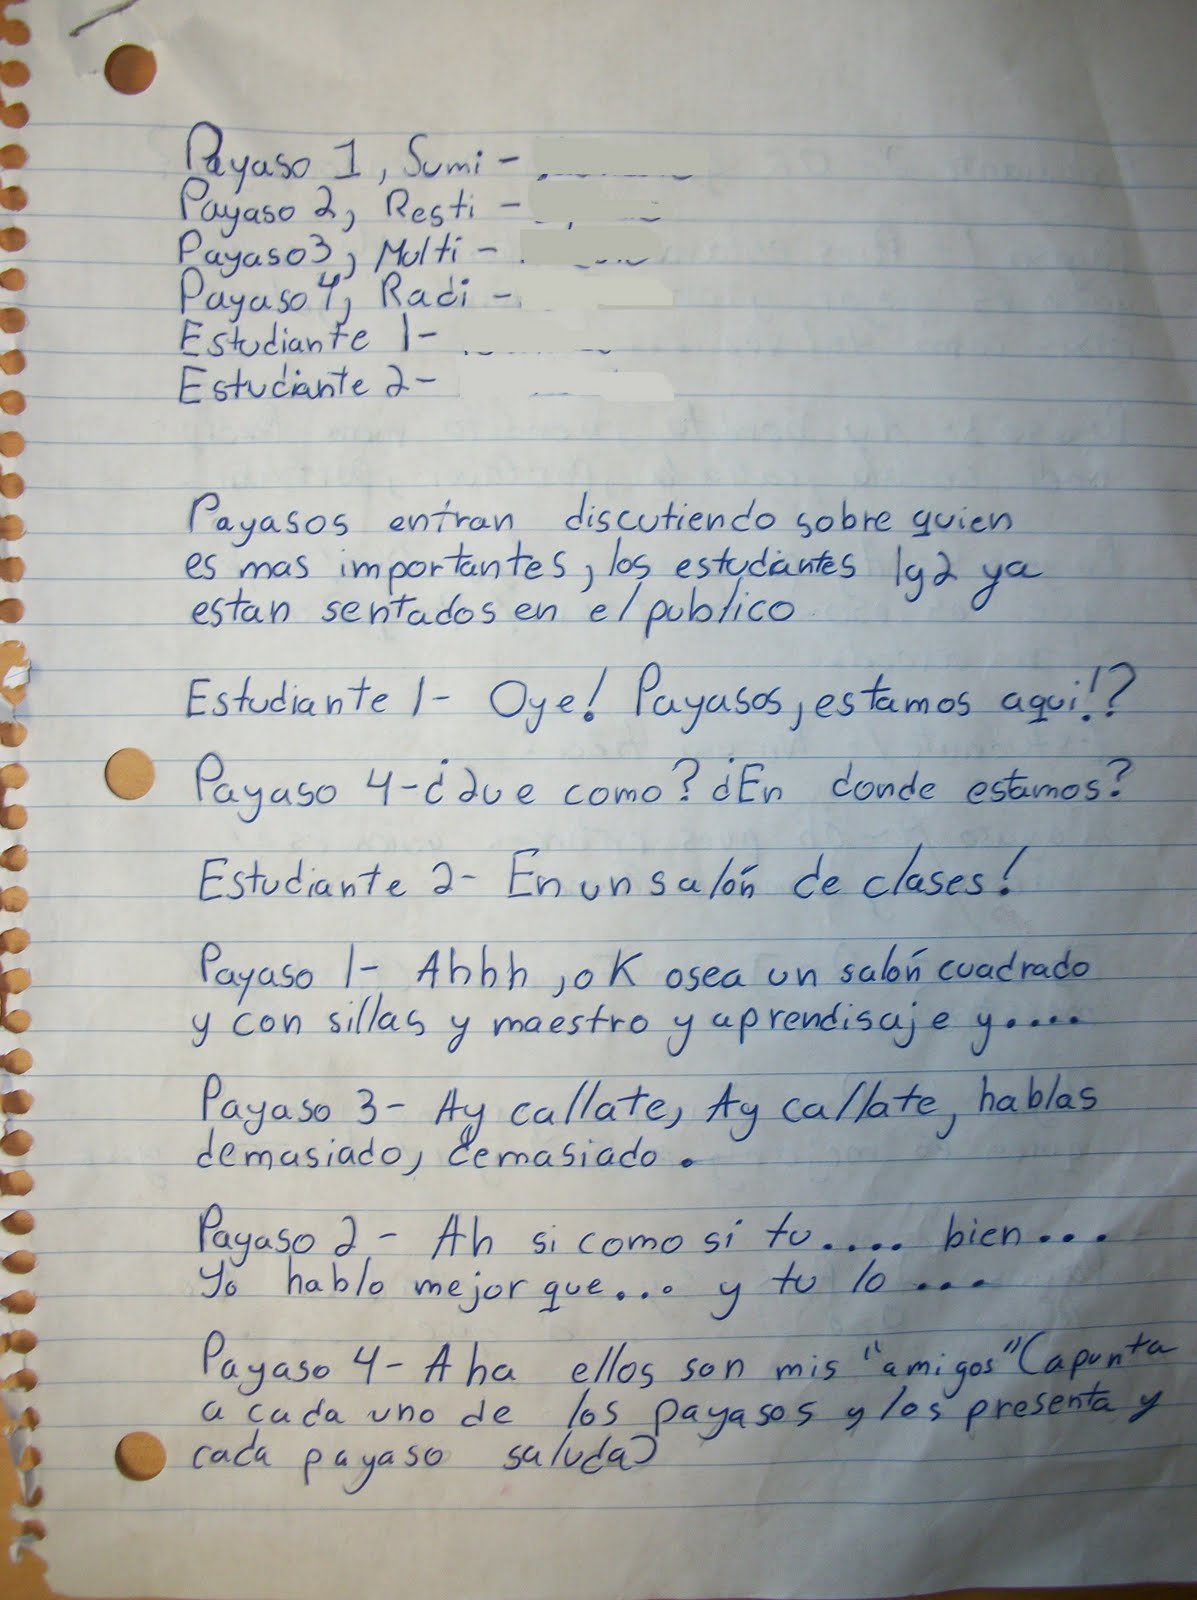 Payaso 1, Sumi -
Payaso 2, Resti -
Payaso 3, Multi -
Payaso 4, Radi -
Estudiante 1-
Estudiante 2-
Payasos entran discutiendo sobre quien
es mas importantes, los estudiantes 1y2 ya
estan sentados en el publico
Estudiante 1- Oye! Payasos, estamos aqui!?
Payaso 4-¿Que como? ¿En donde estamos?
Estudiante 2- En un salón de clases!
Payaso 1- Ahhh, ok osea un salón cuadrado
y con sillas y maestro y aprendisaje y....
Payaso 3- Ay callate, Ay callate, hablas
demasiado, demasiado.
Payaso 2- Ah si como si tu.... bien...
Yo hablo mejor que... y tu lo ...
Payaso 4- Aha ellos son mis "amigos" (apunta
a cada uno de los payasos y los presenta y
cada payaso saluda)